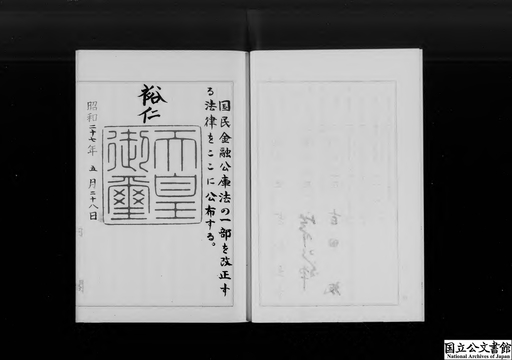 国民金融公庫法の一部を改正す
る法律をここに公布する。
裕仁
天皇
御璽
昭和二十七年五月二十八日
国立公文書館
National Archives of Japan